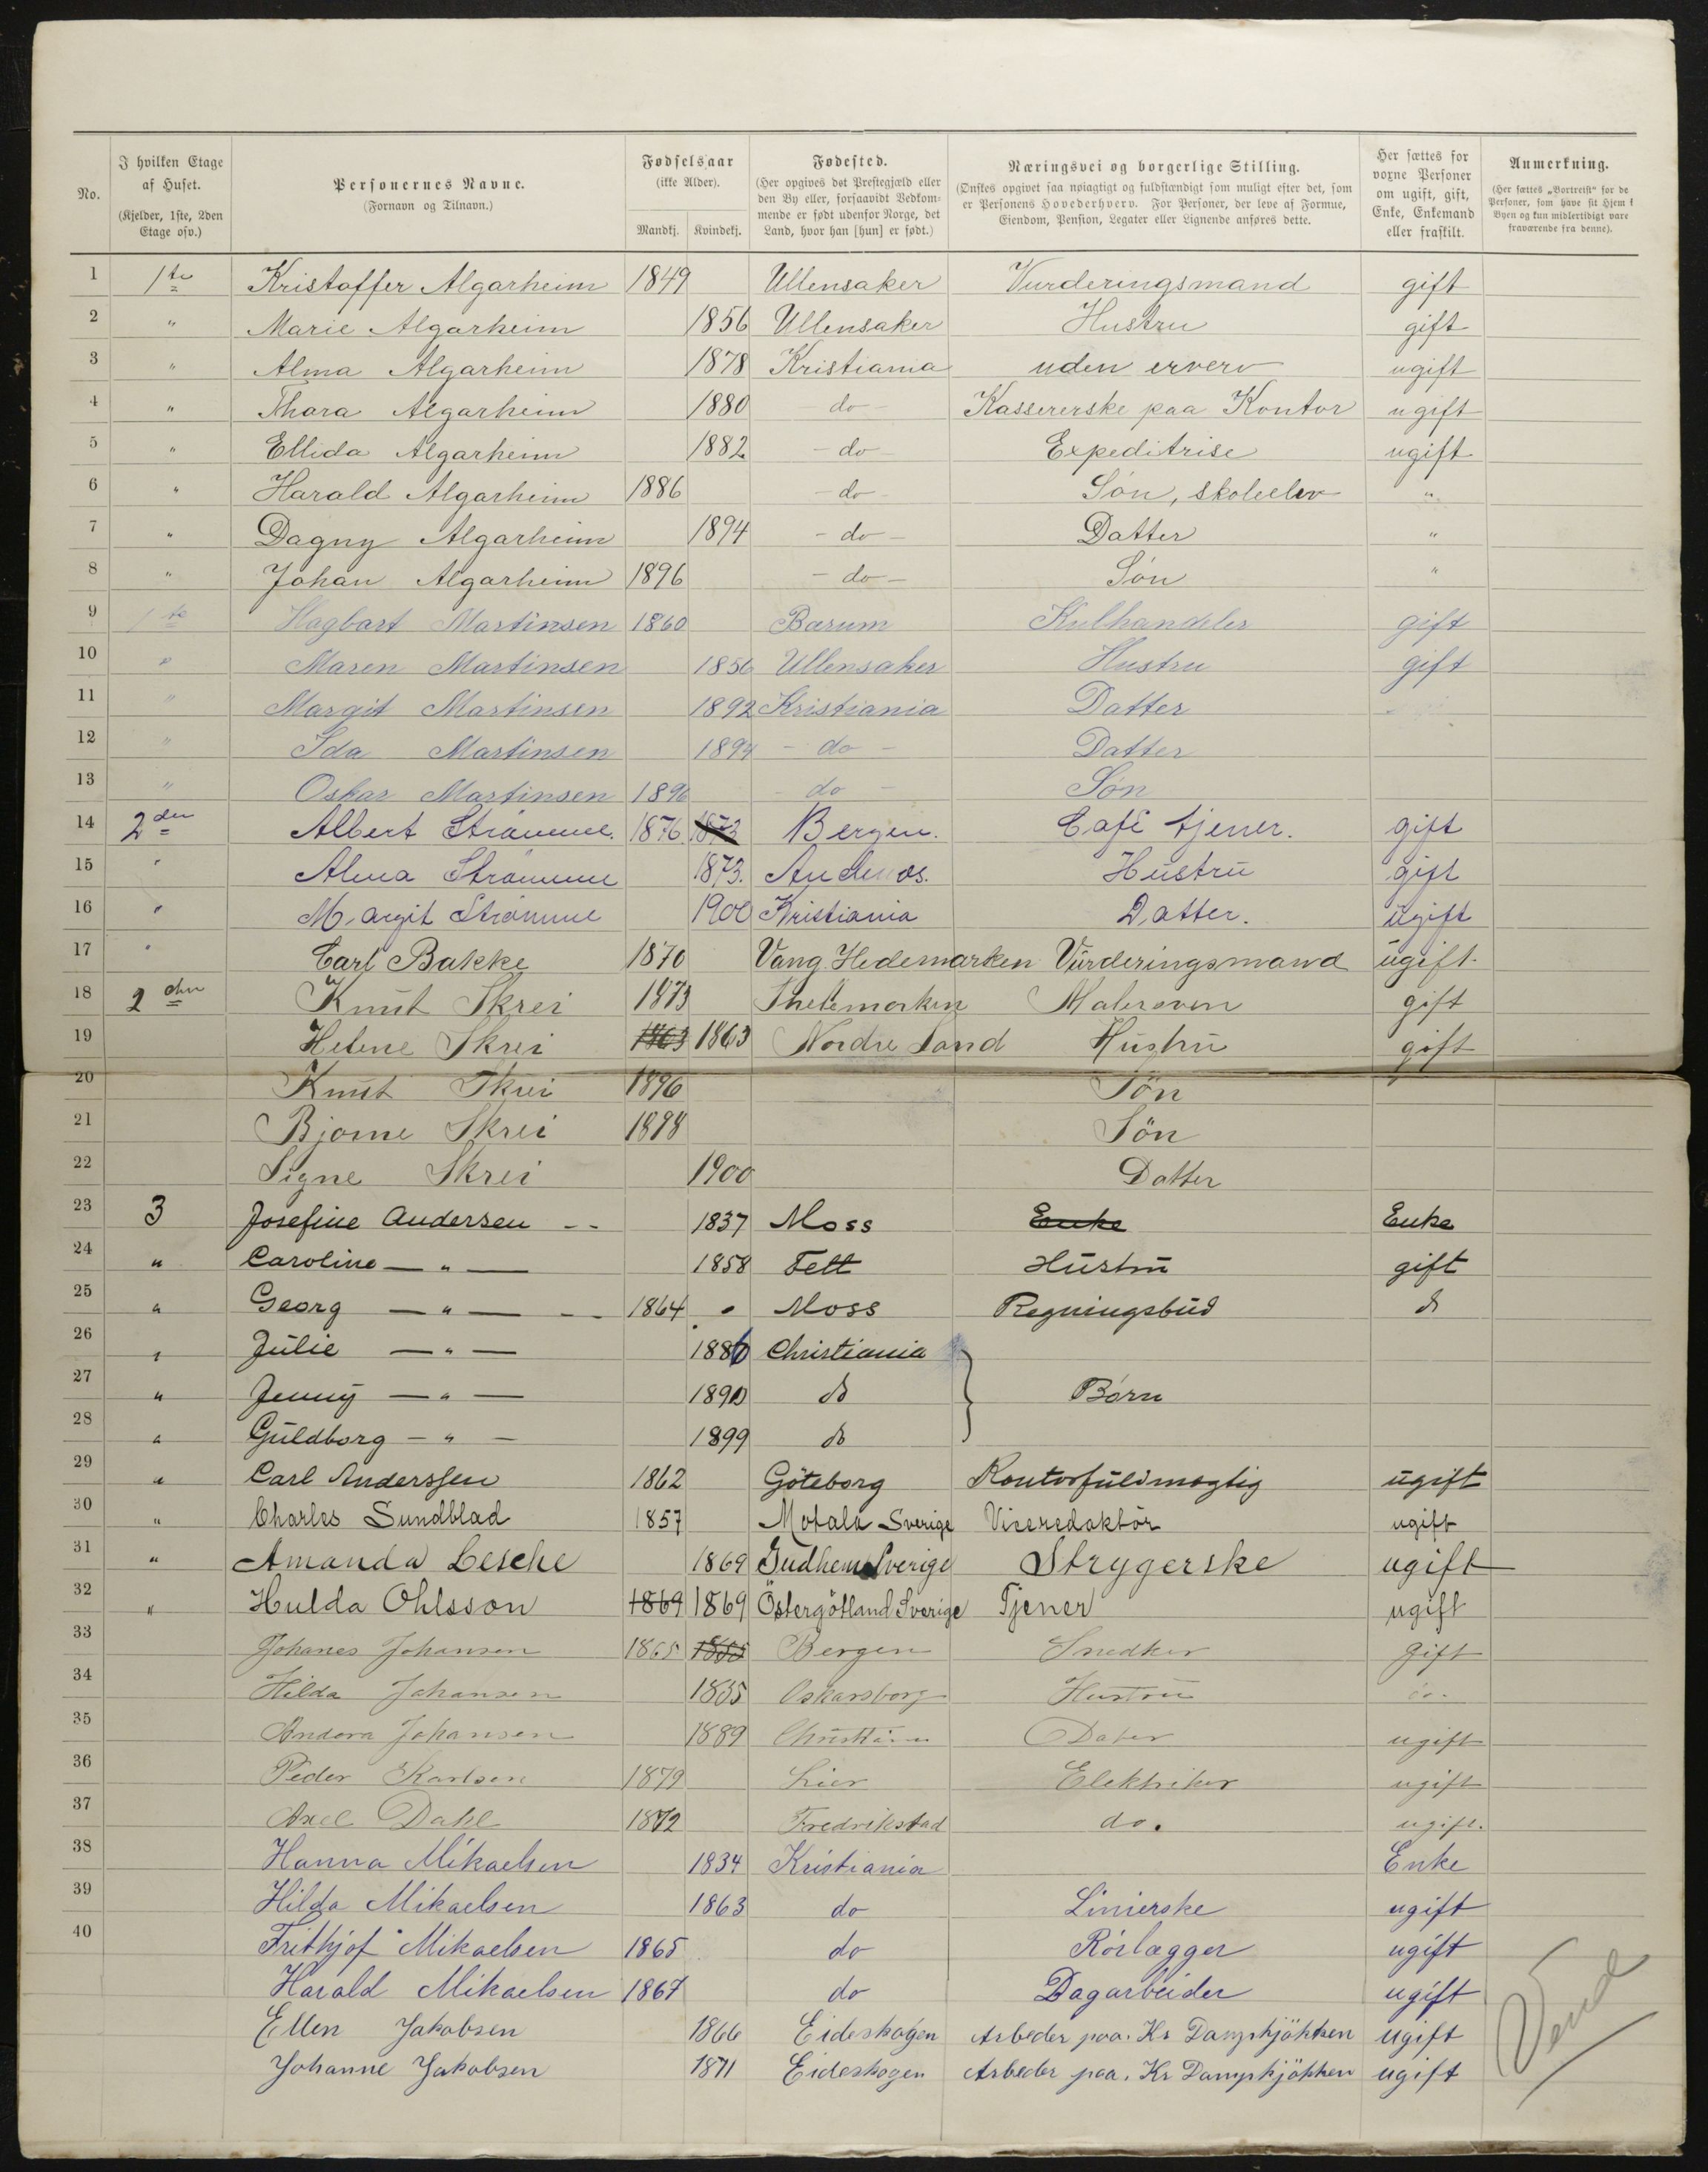 No. | I hvilken Etage af Huset. (Kjelder, 1ste, 2den Etage osv.) | Personernes Navne. (Fornavn og Tilnavn.) | Fødselsaar (ikke Alder). Mandkj. | Kvindekj. | Fødested. (Her opgives det Prestegjæld eller den By eller, forsaavidt Vedkommende er født udenfor Norge, det Land, hvor han [hun] er født.) | Næringsvei og borgerlige Stilling. (Ønskes opgivet saa nøiagtigt og fuldstændigt som muligt efter det, som er Personens Hovederhverv. For Personer, der leve af Formue, Eiendom, Pension, Legater eller Lignende anføres dette.) | Her sættes for voxne Personer om ugift, gift, Enke, Enkemand eller fraskilt. | Anmerkning. (Her sættes „Bortreist“ for de Personer, som have sit Hjem i Byen og kun midlertidigt være fraværende fra denne).
1 1te Kristoffer Algarheim 1849 Ullensaker Vurderingsmand gift
2 " Marie Algarheim 1856 Ullensaker Hustru gift
3 " Alma Algarheim 1878 Kristiania uden erverv ugift
4 " Thora Algarheim 1880 do - Kassererske paa Kontor ugift
5 " Ellida Algarheim 1882 - do - Expeditrise ugift
6 " Harald Algarheim 1886 - do - Søn, skoleelev "
7 " Dagny Algarheim 1894 - do - Datter "
8 " Johan Algarheim 1896 - do - Søn "
9 1te Hagbart Martinsen 1860 Bærum Kulhandeler gift
10 " Maren Martinsen 1856 Ullensaker Hustru gift
11 " Margit Martinsen 1892 Kristiania Datter
12 " Ida Martinsen 1894 - do - Datter
13 " Oskar Martinsen 1896 - do - Søn
14 2den Albert Strömme. 1876. 1873 Bergen. Café tjener. gift
15 " Alma Strömme 1873. Hüstrü gift
16 " Margit Strömme 1900 Kristiania Datter. ügift
17 " Carl Bakke 1870 Vang Hedemarken Vürderingsmand ügift.
18 2den Knüt Skrei 1873 Thelemarken Malersven gift
19 Helene Skrei 1863 1863 Nordre Land Hüstrü gift
20 Knüt Skrei 1896 Sön
21 Bjarne Skrei 1898 Sön
22 Signe Skrei 1900 Datter
23 3 Josefine Andersen -- 1837 Moss Enke Enke
24 " Caroline — " — 1858 Fett Hüstrü gift
25 " Georg — " — - 1864 Moss Regningsbüd do
26 " Jülie — " — 1886 Christiania
27 " Jenny — " — 1890 do } Børn
28 " Güldborg - " — 1899 do
29 " Carl Anderssen 1862 Göteborg Kontorfüldmægtig ügift
30 " Charles Sundblad 1857 Motala Sverige Viseredaktör ugift
31 " Amanda Lesche 1869 Gudhem Sverige Strygerske ugift
32 " Hulda Ohlsson 1869 1869 Östergötland Sverige Tjener ugift
33 Johanes Johansen 1865 1865 Bergen Snedker gift
34 Hilda Johansen Oskarsborg Hustrü do.
35 Andora Johansen 1889 Dater ugift
36 Peder Karlsen 1879 Lier Elektriker ugift
37 Axel Dahl 1872 Fredrikstad do. ugift.
38 Hanna Mikaelsen 1834 Kristiania Enke
39 Hilda Mikaelsen 1863 do Linierske ugift
40 Frithjof Mikaelsen 1865 do Rörlægger ugift
Harald Mikaelsen 1867 do Dagarbeider ugift
Ellen Jakobsen 1866 Eideskogen Arbeder paa. Kr Dampkjökken ugift
Johanne Jakobsen 1871 Eideskogen Arbeder paa. Kr Dampkjökken ugift
Vend